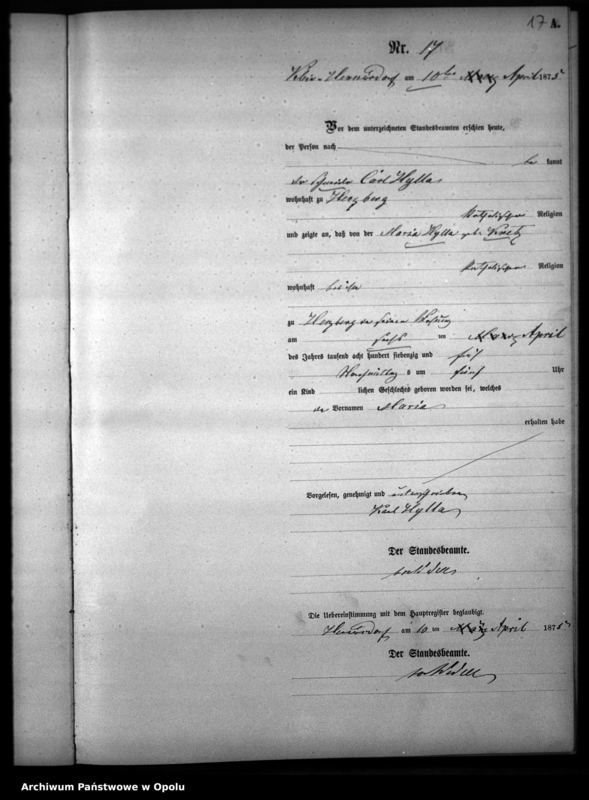 17 A.
Nr. 17
Hennersdorf am 10ten März April 1875
Vor dem unterzeichneten Standesbeamten erschien heute,
der Person nach
be kannt
der Carl Hylla
wohnhaft zu Herzberg
katholischer Religion
und zeigte an, daß von der Maria Hylla geb.
katholischer Religion
wohnhaft bei ihm
zu Herzberg in seiner Wohnung
am sechs ten März April
des Jahres tausend acht hundert siebenzig und fünf
Nachmittag s um fünf Uhr
ein Kind lichen Geschlechts geboren worden sei, welches
den Vornamen Maria
erhalten habe
Vorgelesen, genehmigt und unterschrieben
Karl Hylla
Der Standesbeamte.
Die Uebereinstimmung mit dem Hauptregister beglaubigt.
Hennersdorf am 10 ten März April 1875
Der Standesbeamte.
Archiwum Państwowe w Opolu